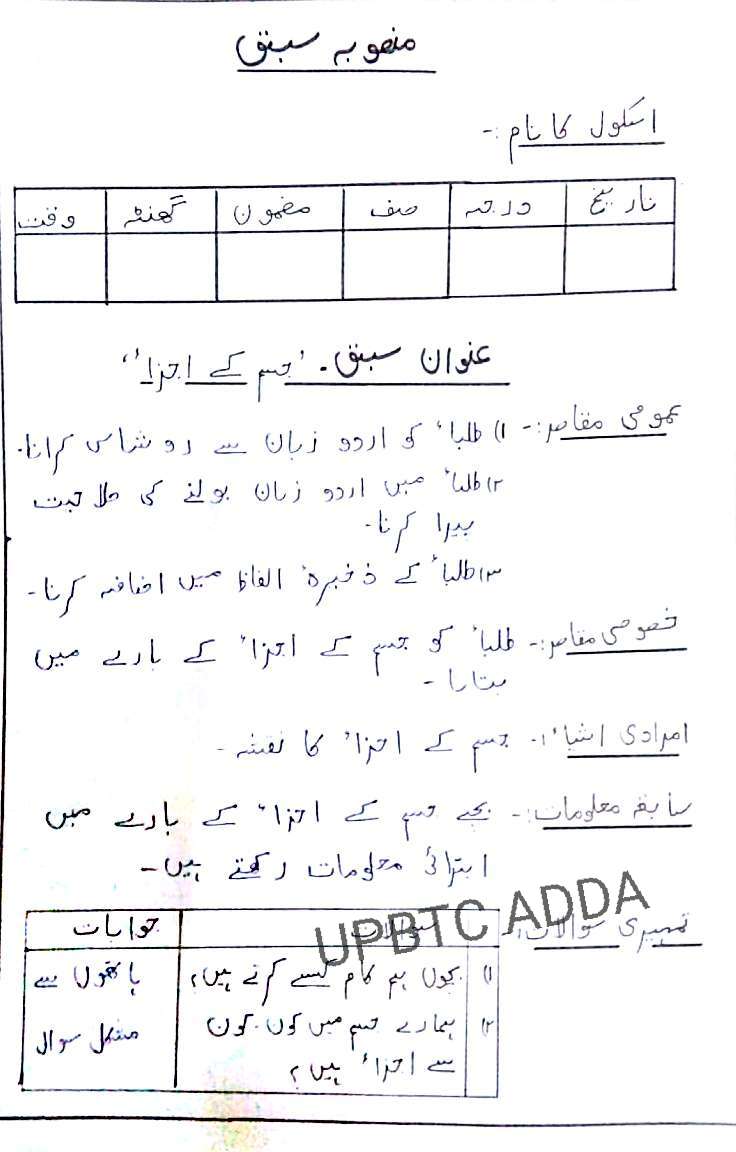 منصوبہ سبق
اسکول کا نام :-
تاریخ درجہ صف مضمون گھنٹہ وقت
عنوان سبق - 'جسم کے اجزاء'
عمومی مقاصد :- ۱) طلباء کو اردو زبان سے روشناس کرانا۔
۲) طلباء میں اردو زبان بولنے کی صلاحیت
پیدا کرنا۔
۳) طلباء کے ذخیرۂ الفاظ میں اضافہ کرنا۔
خصوصی مقاصد :- طلباء کو جسم کے اجزاء کے بارے میں
بتانا۔
امدادی اشیاء :- جسم کے اجزاء کا نقشہ۔
سابقہ معلومات :- بچے جسم کے اجزاء کے بارے میں
ابتدائی معلومات رکھتے ہیں۔
تمہیدی سوالات :-
سوالات جوابات
UPBTC ADDA
۱) بچوں ہم کام کیسے کرتے ہیں؟ ہاتھوں سے
۲) ہمارے جسم میں کون کون مشکل سوال
سے اجزاء ہیں؟